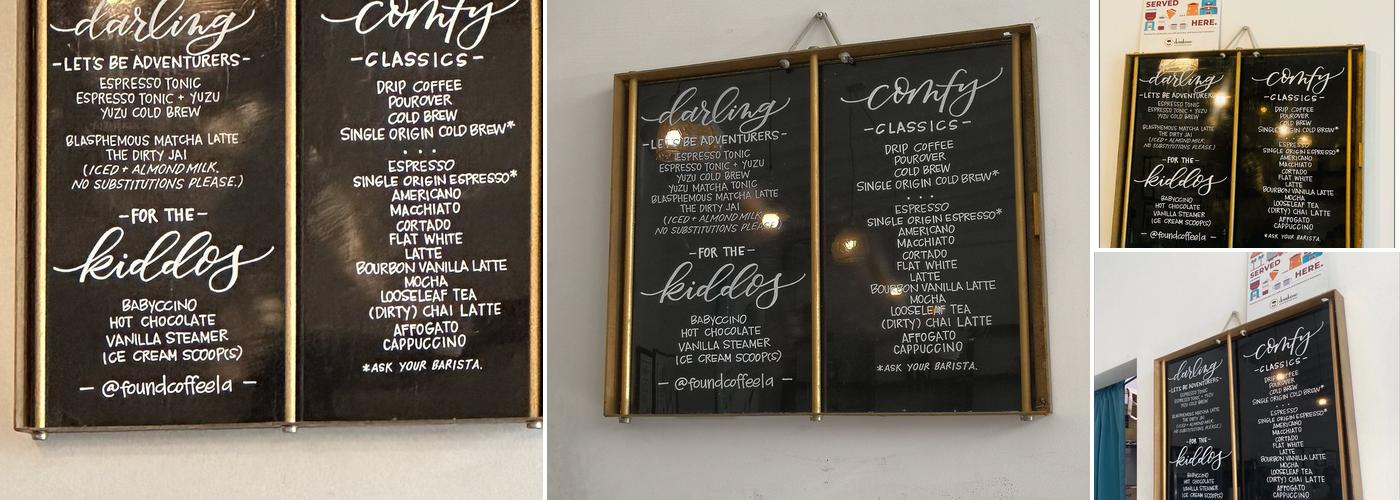 darling
-LET'S BE ADVENTURERS-
ESPRESSO TONIC
ESPRESSO TONIC + YUZU
YUZU COLD BREW
BLASPHEMOUS MATCHA LATTE
THE DIRTY JAI
(ICED + ALMOND MILK.
NO SUBSTITUTIONS PLEASE.)
-FOR THE-
kiddos
BABYCCINO
HOT CHOCOLATE
VANILLA STEAMER
ICE CREAM SCOOP(S)
- @foundcoffeela -
comfy
-CLASSICS-
DRIP COFFEE
POUROVER
COLD BREW
SINGLE ORIGIN COLD BREW*
...
ESPRESSO
SINGLE ORIGIN ESPRESSO*
AMERICANO
MACCHIATO
CORTADO
FLAT WHITE
LATTE
BOURBON VANILLA LATTE
MOCHA
LOOSELEAF TEA
(DIRTY) CHAI LATTE
AFFOGATO
CAPPUCCINO
*ASK YOUR BARISTA.
darling
-LET'S BE ADVENTURERS-
ESPRESSO TONIC
ESPRESSO TONIC + YUZU
YUZU COLD BREW
YUZU MATCHA TONIC
BLASPHEMOUS MATCHA LATTE
THE DIRTY JAI
(ICED + ALMOND MILK.
NO SUBSTITUTIONS PLEASE
-FOR THE-
kiddos
BABYCCINO
HOT CHOCOLATE
VANILLA STEAMER
ICE CREAM SCOOP(S)
- @foundcoffeela -
comfy
-CLASSICS-
DRIP COFFEE
POUROVER
COLD BREW
SINGLE ORIGIN COLD BREW*
...
ESPRESSO
SINGLE ORIGIN ESPRESSO*
AMERICANO
MACCHIATO
CORTADO
FLAT WHITE
LATTE
BOURBON VANILLA LATTE
MOCHA
LOOSELEAF TEA
(DIRTY) CHAI LATTE
AFFOGATO
CAPPUCCINO
*ASK YOUR BARISTA.
SERVED
HERE.
darling
-LET'S BE ADVENTURERS-
ESPRESSO TONIC
ESPRESSO TONIC + YUZU
YUZU COLD BREW
BLASPHEMOUS MATCHA LATTE
THE DIRTY JAI
(ICED + ALMOND MILK.
NO SUBSTITUTIONS PLEASE.)
-FOR THE-
kiddos
BABYCCINO
HOT CHOCOLATE
VANILLA STEAMER
ICE CREAM SCOOP(S)
- @foundcoffeela -
comfy
-CLASSICS-
DRIP COFFEE
POUROVER
COLD BREW
SINGLE ORIGIN COLD BREW*
ESPRESSO
SINGLE ORIGIN ESPRESSO*
AMERICANO
MACCHIATO
CORTADO
FLAT WHITE
LATTE
BOURBON VANILLA LATTE
MOCHA
LOOSELEAF TEA
(DIRTY) CHAI LATTE
AFFOGATO
CAPPUCCINO
*ASK YOUR BARISTA.
SERVED
HERE.
darling
-LET'S BE ADVENTURERS-
ESPRESSO TONIC
ESPRESSO TONIC + YUZU
YUZU COLD BREW
BLASPHEMOUS MATCHA LATTE
THE DIRTY JAI
(ICED + ALMOND MILK.
NO SUBSTITUTIONS PLEASE.)
-FOR THE-
kiddos
BABYCCINO
HOT CHOCOLATE
VANILLA STEAMER
comfy
-CLASSICS-
DRIP COFFEE
POUROVER
COLD BREW
SINGLE ORIGIN COLD BREW*
...
ESPRESSO
SINGLE ORIGIN ESPRESSO*
AMERICANO
MACCHIATO
CORTADO
FLAT WHITE
LATTE
BOURBON VANILLA LATTE
MOCHA
LOOSELEAF TEA
(DIRTY) CHAI LATTE
AFFOGATO
CAPPUCCINO